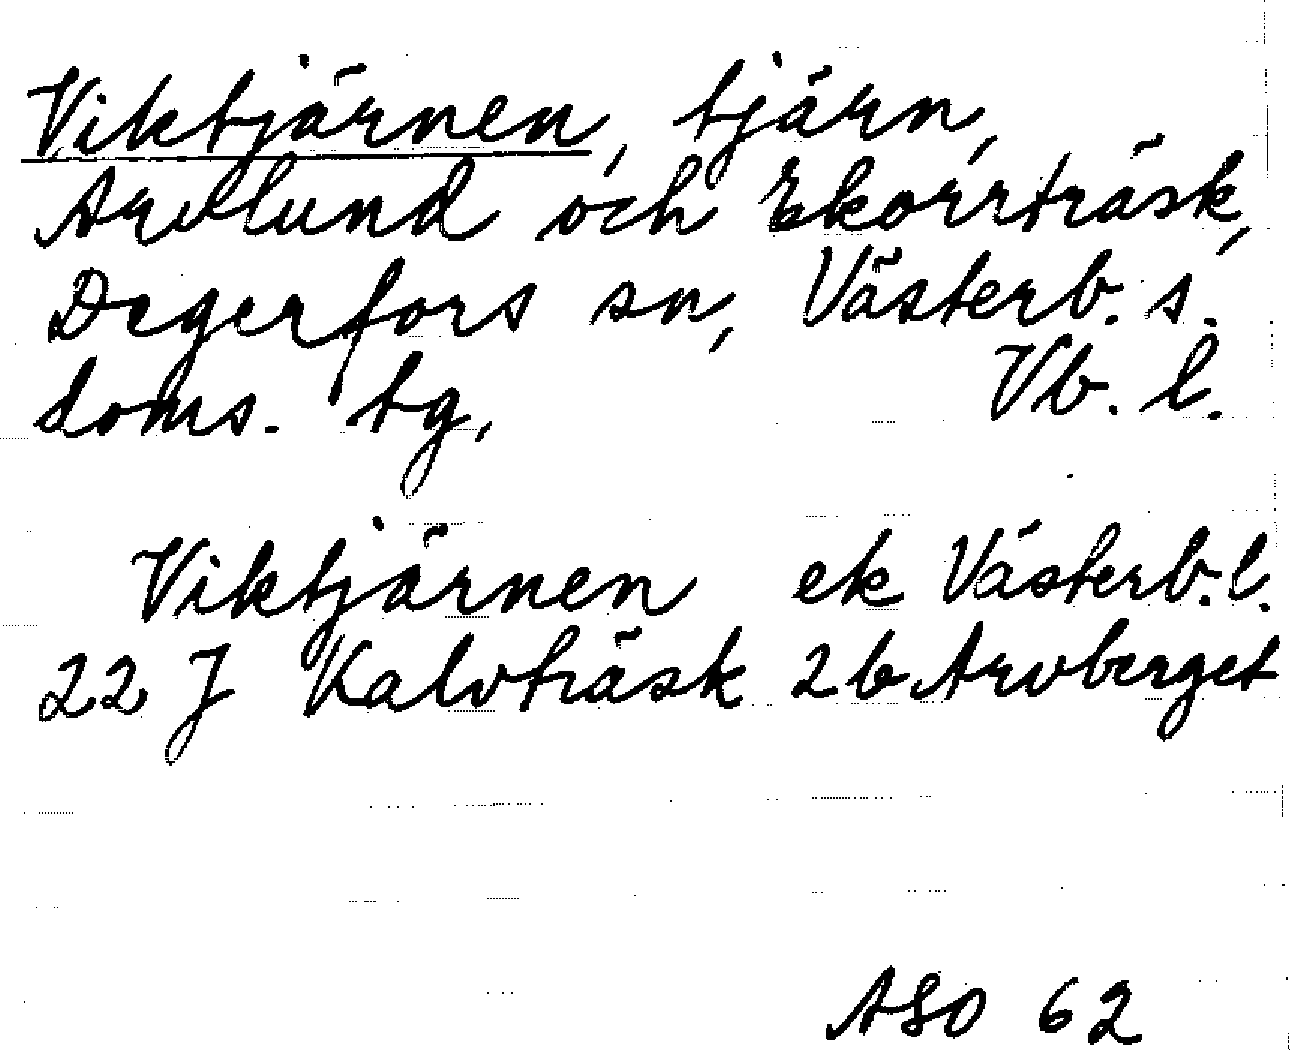 Viktjärnen, tjärn,
Arvlund och Ekorrträsk,
Degerfors sn, Västerb. s.
doms. tg, Vb. l.
Viktjärnen ek Västerb. l.
22 J Kalvträsk 2b Arvberget
ASO 62